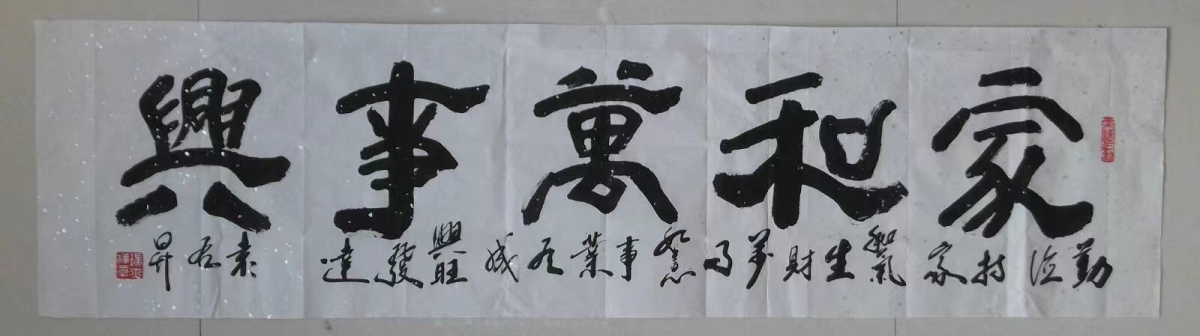 家和萬事興
勤俭持家和氣生財萬事如意事業有成興旺發達